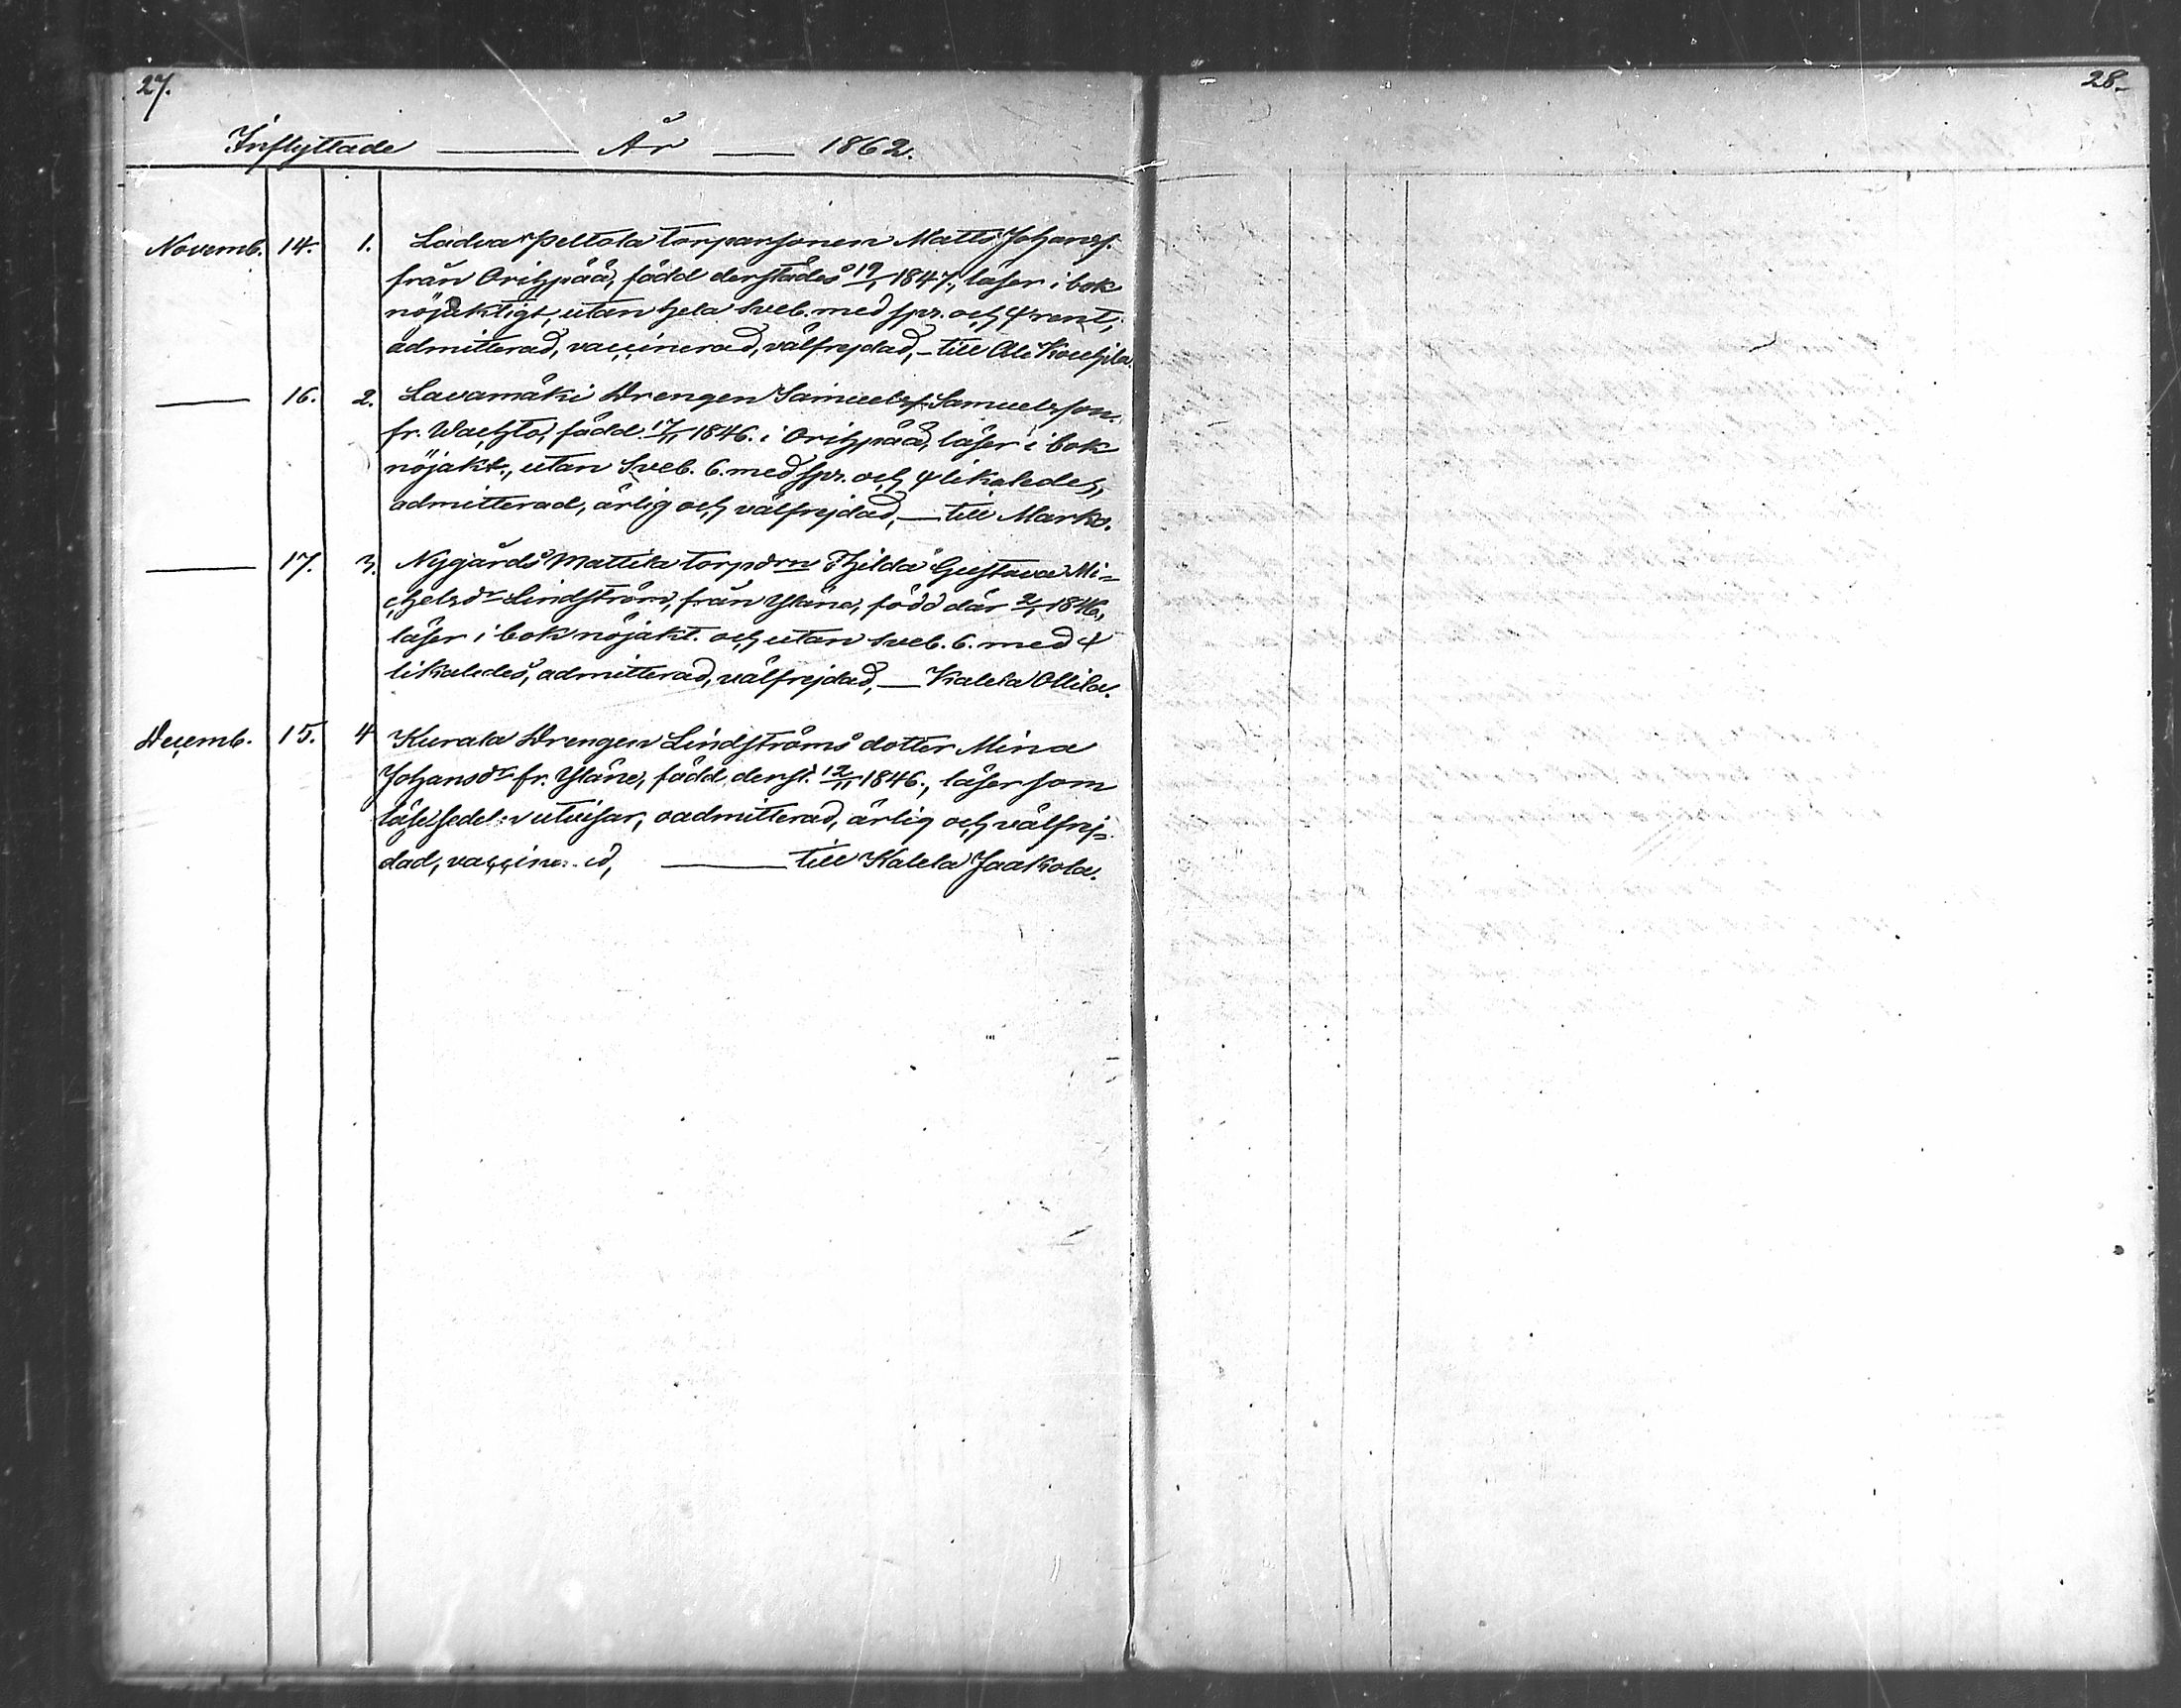 27.
28.
Inflyttade — År — 1862.
Novemb. 14. 1. Ladva Peltola torparsonen Matts Johanss.
från Oripää, född derstädes 19/1 1847., läser i bok
nöjaktigt, utan hela Sveb. med spr. och ψ rent,
admitterad, vaccinerad, välfrejdad, – till Ali Kouhila.
— 16. 2. Lavamäki Drengen Samuels. Samuelsson
fr. Wachto, född 17/11 1846. i Oripää, läser i bok
nöjakt., utan Sveb. 6. med spr. och ψ likaledes,
admitterad, ärlig och välfrejdad, — till Marko.
— 17. 3. Nygårds Mattila torpdrn Thilda Gustava Mi-
chelsdr Lindström, från Yläne, född där 2/1 1846.,
läser i bok nöjakt. och utan Sveb. 6. med ψ
likaledes, admitterad, välfrejdad, — Kalela Ollila.
Decemb. 15. 4 Kurala Drengen Lindströms dotter Mina
Johansdr fr. Yläne, född derst. 12/11 1846., läser som
läsesedeln utvisar, oadmitterad, ärlig och välfrej-
dad, vaccinerad, — till Kalela Jaakola.